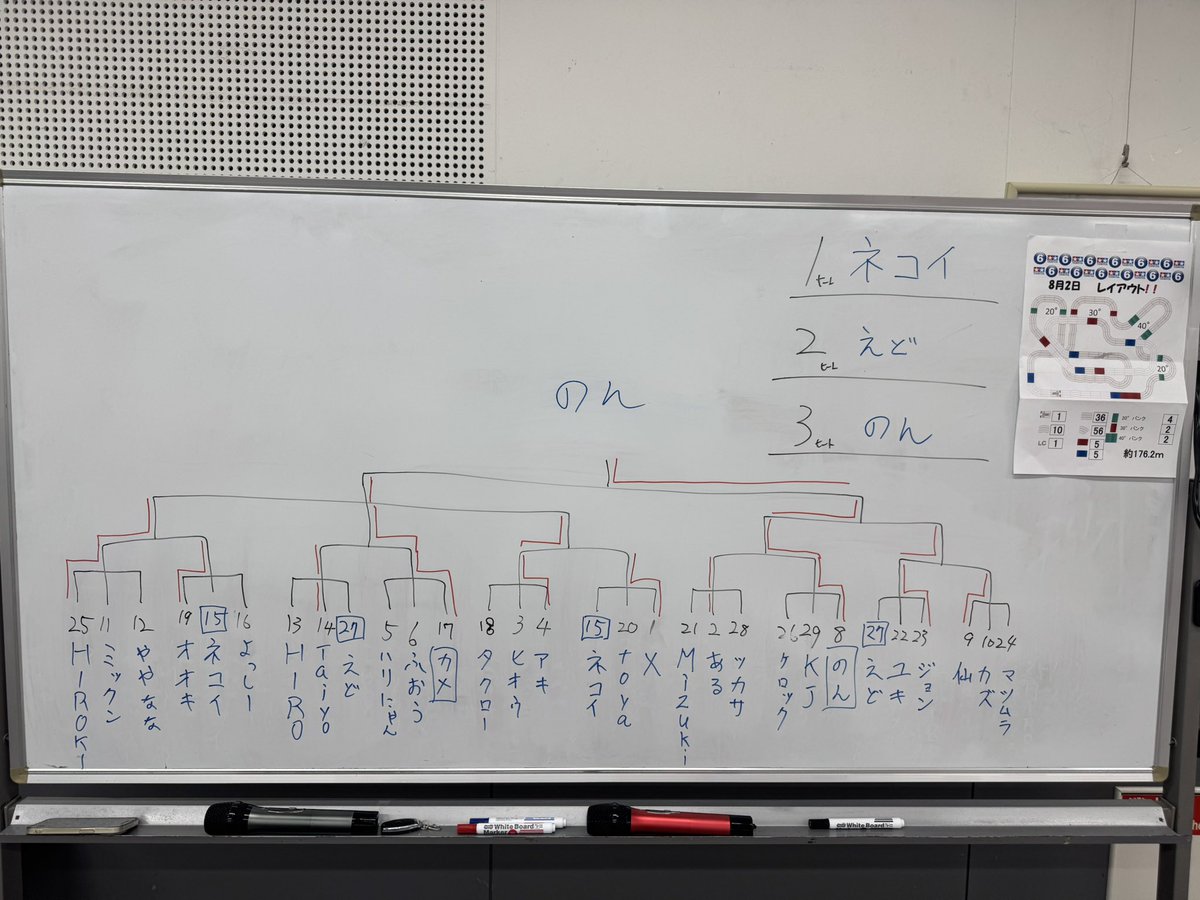 1ヒート ネコイ
2ヒート えど
3ヒート のん
のん
8月2日 レイアウト!!
20° 30° 40°
20°
1 36 20°バンク 4
10 56 30°バンク 2
LC 1 5 40°バンク 2
5 約176.2m
25 11 12 19 15 16 13 14 27 5 6 17 18 3 4 15 20 1 21 2 28 26 29 8 27 22 23 9 10 24
HIROKI
ミミックン
ややなな
オオキ
ネコイ
よっしー
HIRO
Taiyo
えど
ハリにゃん
ふおう
カメ
タクロー
ヒオウ
アキ
ネコイ
toya
X
Mizuki
ある
ツカサ
ケロック
KJ
のん
えど
ユキ
ジョン
仙
カズ
マツムラ
White Board Marker
White Board